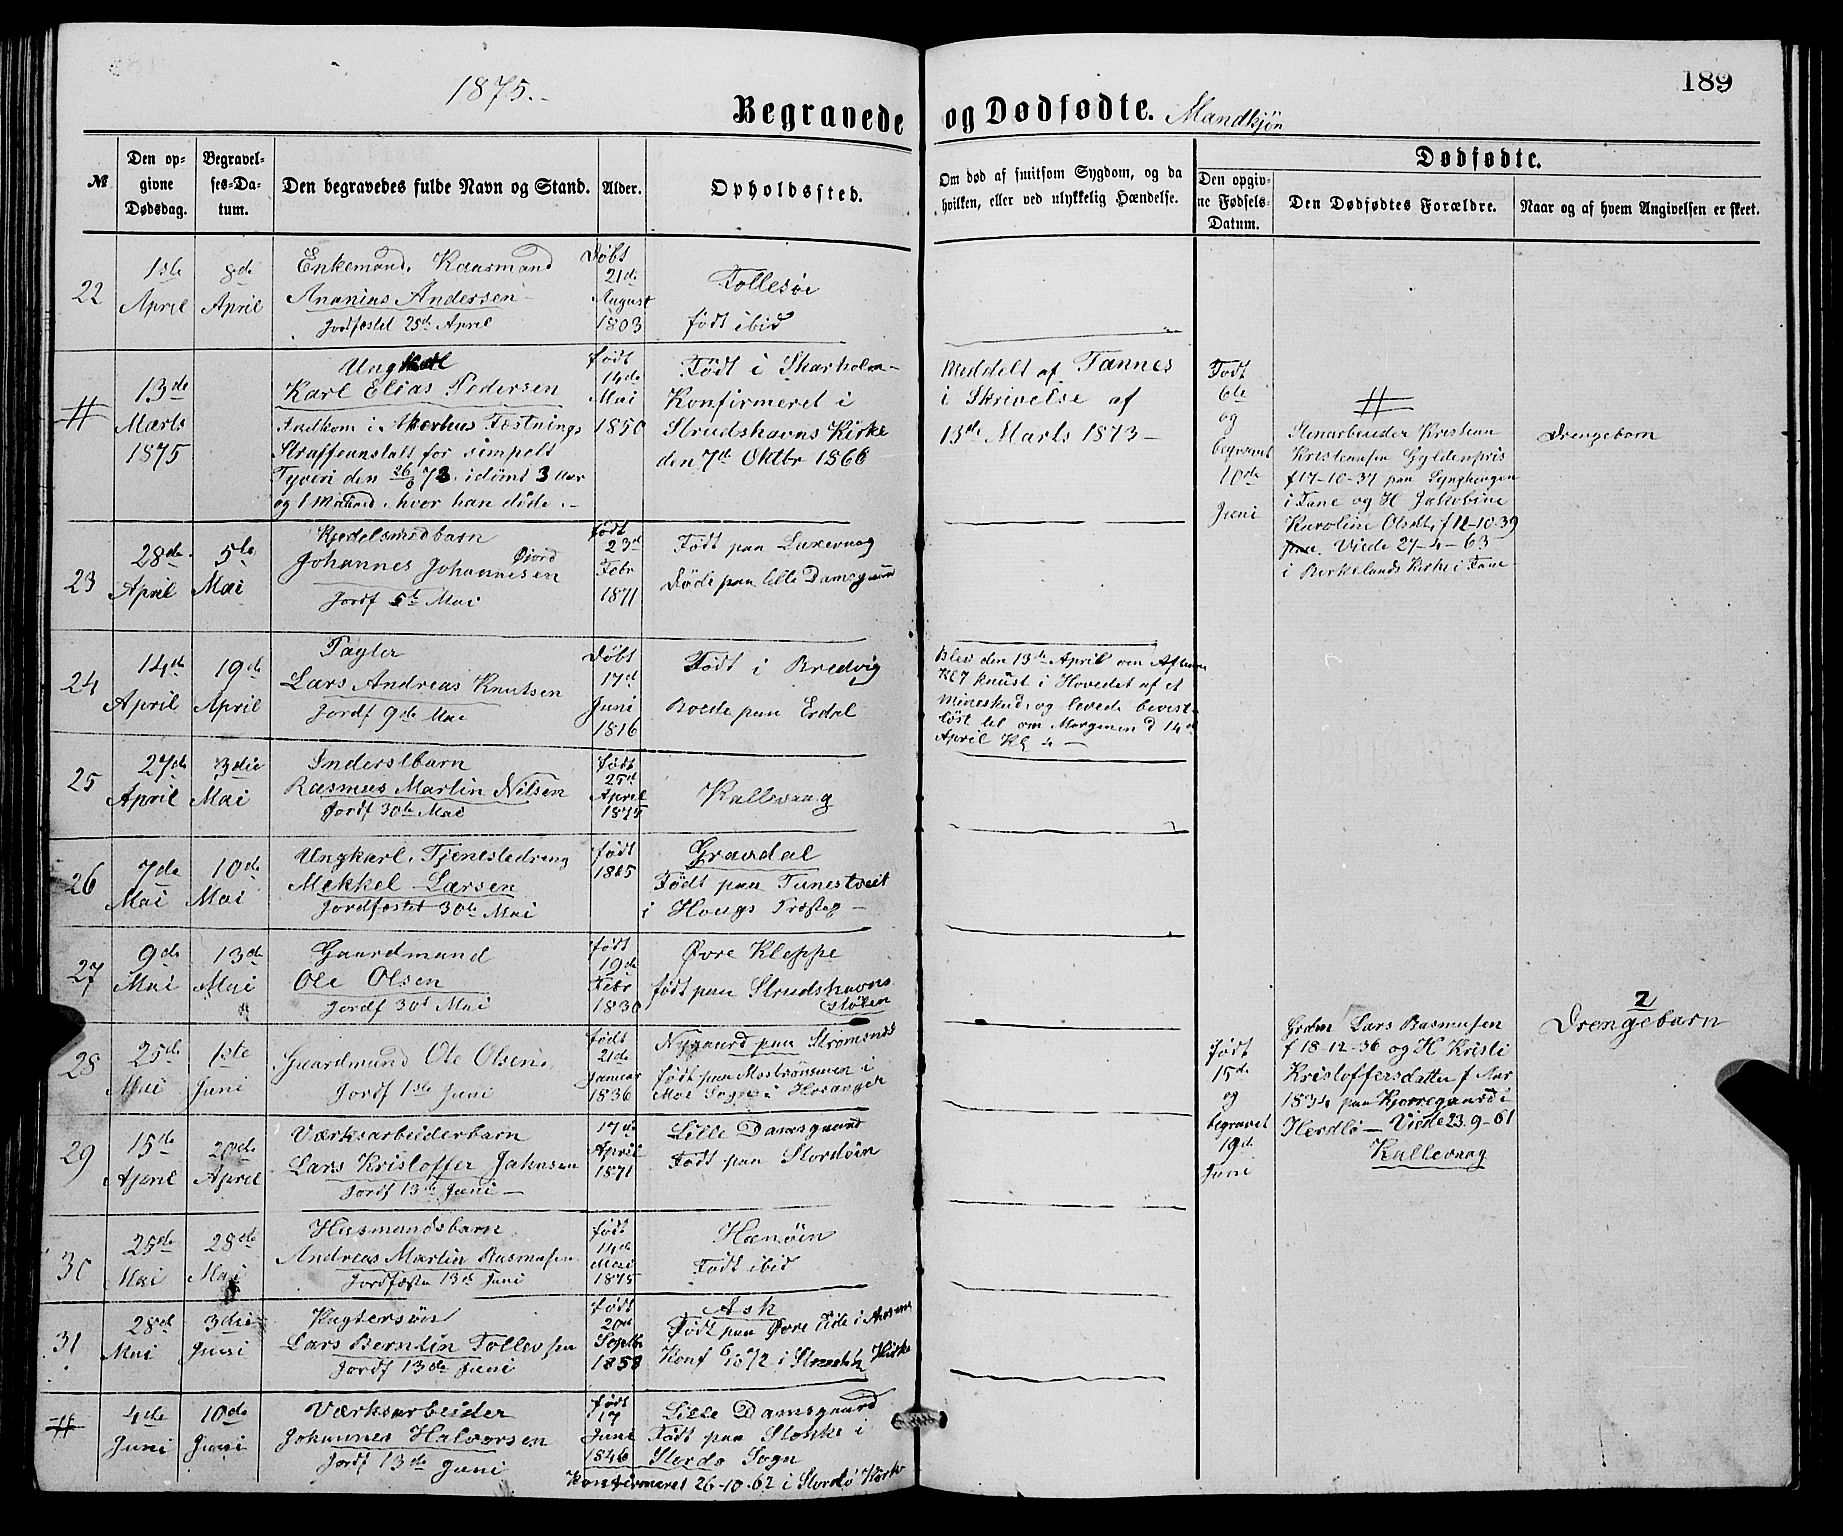 1875.-
189
Begravede og Dødfødte. Mandkjøn
№
Den opgivne Dødsdag.
Begravelses-Datum.
Den begravedes fulde Navn og Stand.
Alder.
Opholdssted.
Om død af smitsom Sygdom, og da hvilken, eller ved ulykkelig Hændelse.
Dødfødte.
Den opgivne Fødsels-Datum.
Den Dødfødtes Forældre.
Naar og af hvem Angivelsen er skeet.
22
1ste
April
8de
April
Enkemand. Kaarmand
Ananias Andersen
Jordfæstet 25de April
Døbt
21de
August
1803
Tollesøi
født ibid
#
13de
Marts
1875
Ungkarl
Karl Elias Pedersen
Indkom i Akerhus Fæstnings
Straffeanstalt for simpelt
Tyveri den 26/8 73. idømt 3 Aar
og 1 Maaned, hvor han døde.-
født
14de
Mai
1850
Født i Skarholm-
Konfirmeret i
Strudshavns Kirke
den 7de Oktbr 1866
Meddelt af Fannes
i Skrivelse af
13de Marts 1873-
23
28de
April
5te
Mai
Kjedelsmedbarn
Johannes Johannesen Øiord
Jordf 5te Mai
født
23de
Febr
1871
Født paa Laxevaag
Døde paa lille Damsgaard
24
14de
April
19de
April
Pagter
Lars Andreas Knutsen
Jordf 9de Mai
Døbt
17de
Juni
1816
Født i Bredvig
Boede paa Erdal
Blev den 13de April om Aftenen
Kl 7 knust i Hovedet af et
Mineskud, og levede bevist-
løst til om Morgenen d 14de
April Kl 4 -
25
27de
April
3die
Mai
Inderstbarn
Rasmus Martin Nilsen
Jordf 30te Mai
født
25de
April
1875
Kallevaag
26
7de
Mai
10de
Mai
Ungkarl. Tjenestedreng
Mekkel Larsen
Jordfæstet 30te Mai
født
1815
Gravdal
Født paa Tunestveit
i Hougs Præsteg-
27
9de
Mai
13de
Mai
Gaardmand
Ole Olsen
Jordf 30te Mai
født
19de
Febr
1830
Øvre Kleppe
født paa Strudshavns
støken
28
25de
Mai
1ste
Juni
Gaardmand Ole Olsen
Jordf 1ste Juni
født
21de
Januar
1836
Nygaard paa Strømsnes
født paa Mostrømmen i
Moe Sogn i Hosanger
29
15de
April
20de
April
Værksarbeiderbarn
Lars Kristoffer Jahnsen
Jordf 13de Juni -
17de
April
1871
Lille Damsgaard
Født paa Stordøin
30
25de
Mai
28de
Mai
Husmandsbarn
Andreas Martin Rasmusen
Jordfæste 13de Juni
født
14de
Mai
1875
Hanøin
Født ibid
31
28de
Mai
3die
Juni
Pagtersøn
Lars Berntin Tollevsen
Jordf 13de Juni
født
20de
Septbr
1858
Ask
Født paa Øvre Eide i
Konf 6/10 72 i Kirke
#
4de
Juni
10de
Juni
Værksarbeider
Johannes Halvorsen
Jordf 13de Juni
født
17
Juni
1846
Lille Damsgaard
Født paa i
Stordø Sogn
Konfirmeret 26-10-62 i Stordø Kirke
Født
6te
og
begravet
10de
Juni
#
Stenarbeider Kristian
Kristensen Gyldenpris
f 17-10-37 paa Lynghaugen
i Fane og H Jakobine
Karoline Olsdtr f 12-10-39
Viede 27-4-63
i Birkelands Kirke i Fane
Drengebarn
født
15de
og
begravet
19de
Juni
Grdm Lars Rasmusen
f 18-12-36 og H Kristi
Kristoffersdatter f Aar
1834 paa Kjorregaard i
Herdlø - Viede 23.9-61
Kallevaag
2
Drengebarn